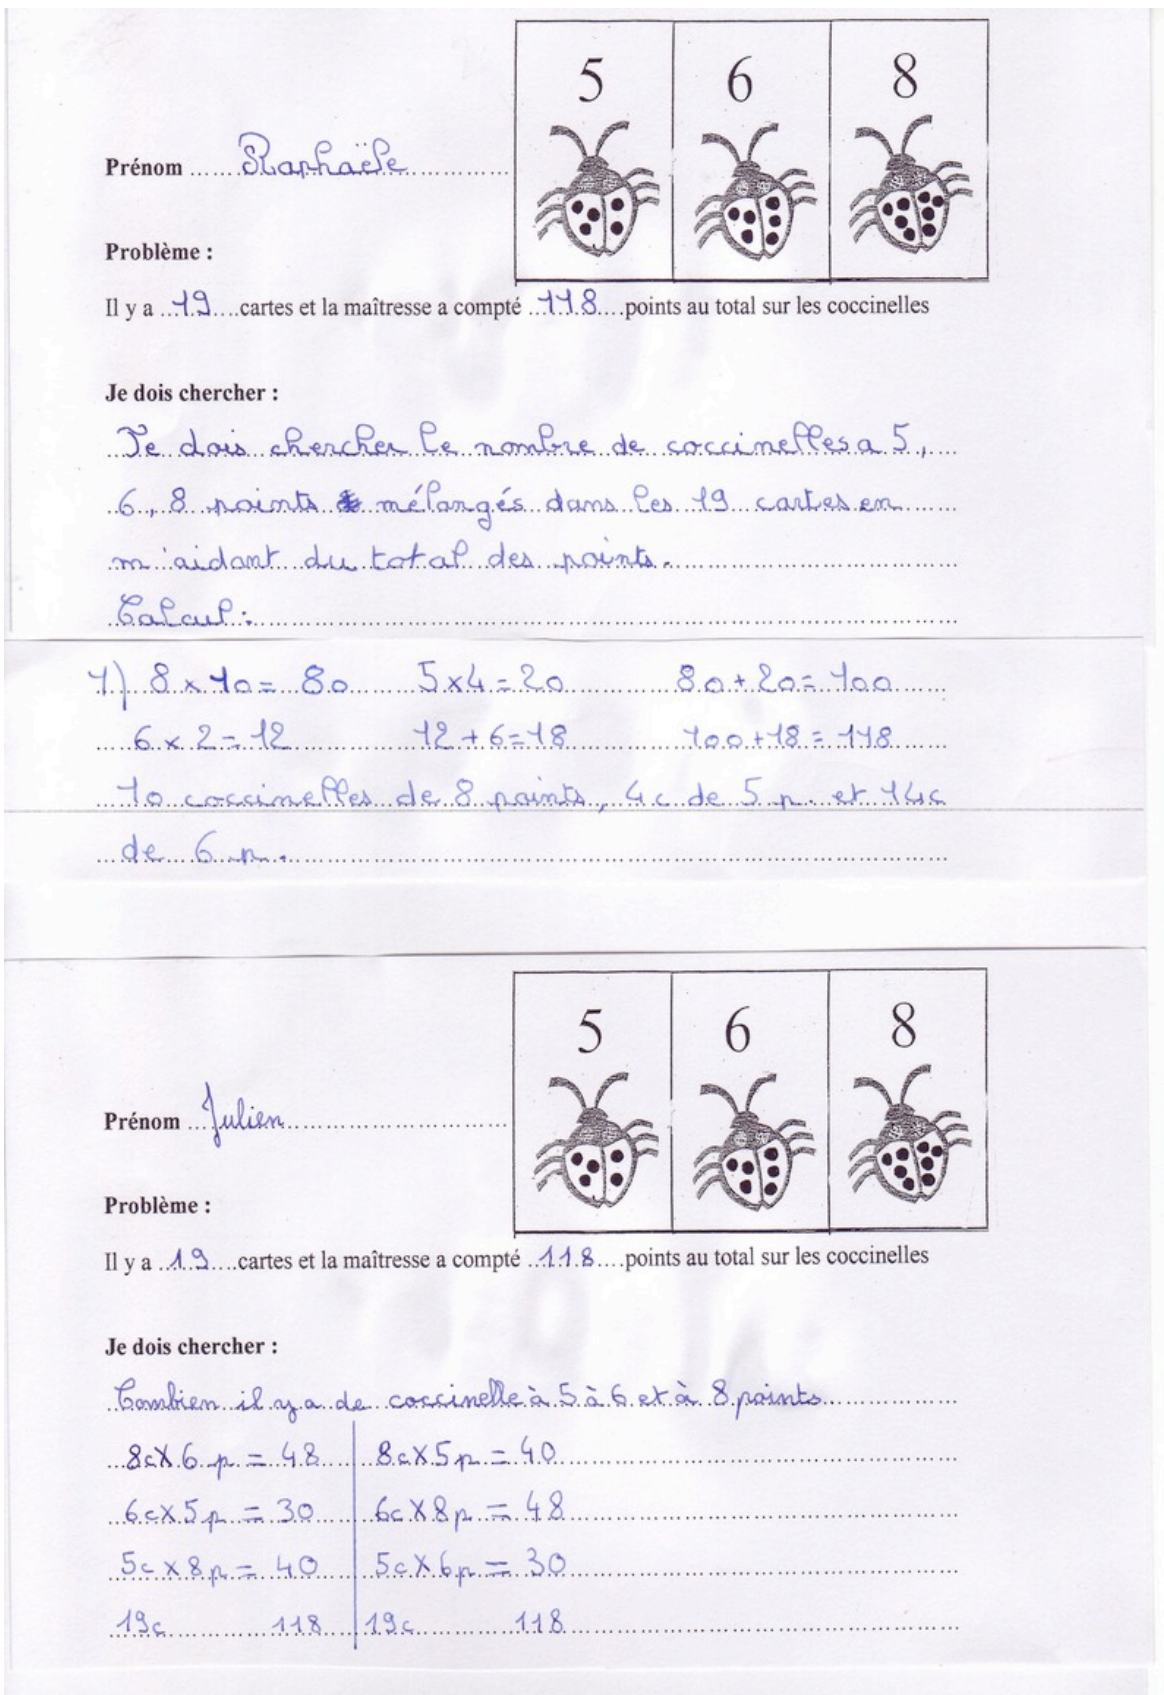 5 6 8
Prénom ...... Raphaële ............
Problème :
Il y a ..19....cartes et la maîtresse a compté ..118....points au total sur les coccinelles
Je dois chercher :
Je dois chercher le nombre de coccinelles a 5,
6, 8 points mélangés dans les 19 cartes en
m'aidant du total des points.
Calcul :
1) 8 x 10 = 80 5 x 4 = 20 80 + 20 = 100
6 x 2 = 12 12 + 6 = 18 100 + 18 = 118
10 coccinelles de 8 points, 4 c de 5 p. et 14c
de 6 p.
5 6 8
Prénom ... Julien ............
Problème :
Il y a ..19....cartes et la maîtresse a compté ..118....points au total sur les coccinelles
Je dois chercher :
Combien il y a de coccinelle à 5 à 6 et à 8 points
8c X 6 p = 48 8c X 5 p = 40
6c X 5 p = 30 6c X 8 p = 48
5c x 8 p = 40 5c X 6 p = 30
19c 118 19c 118